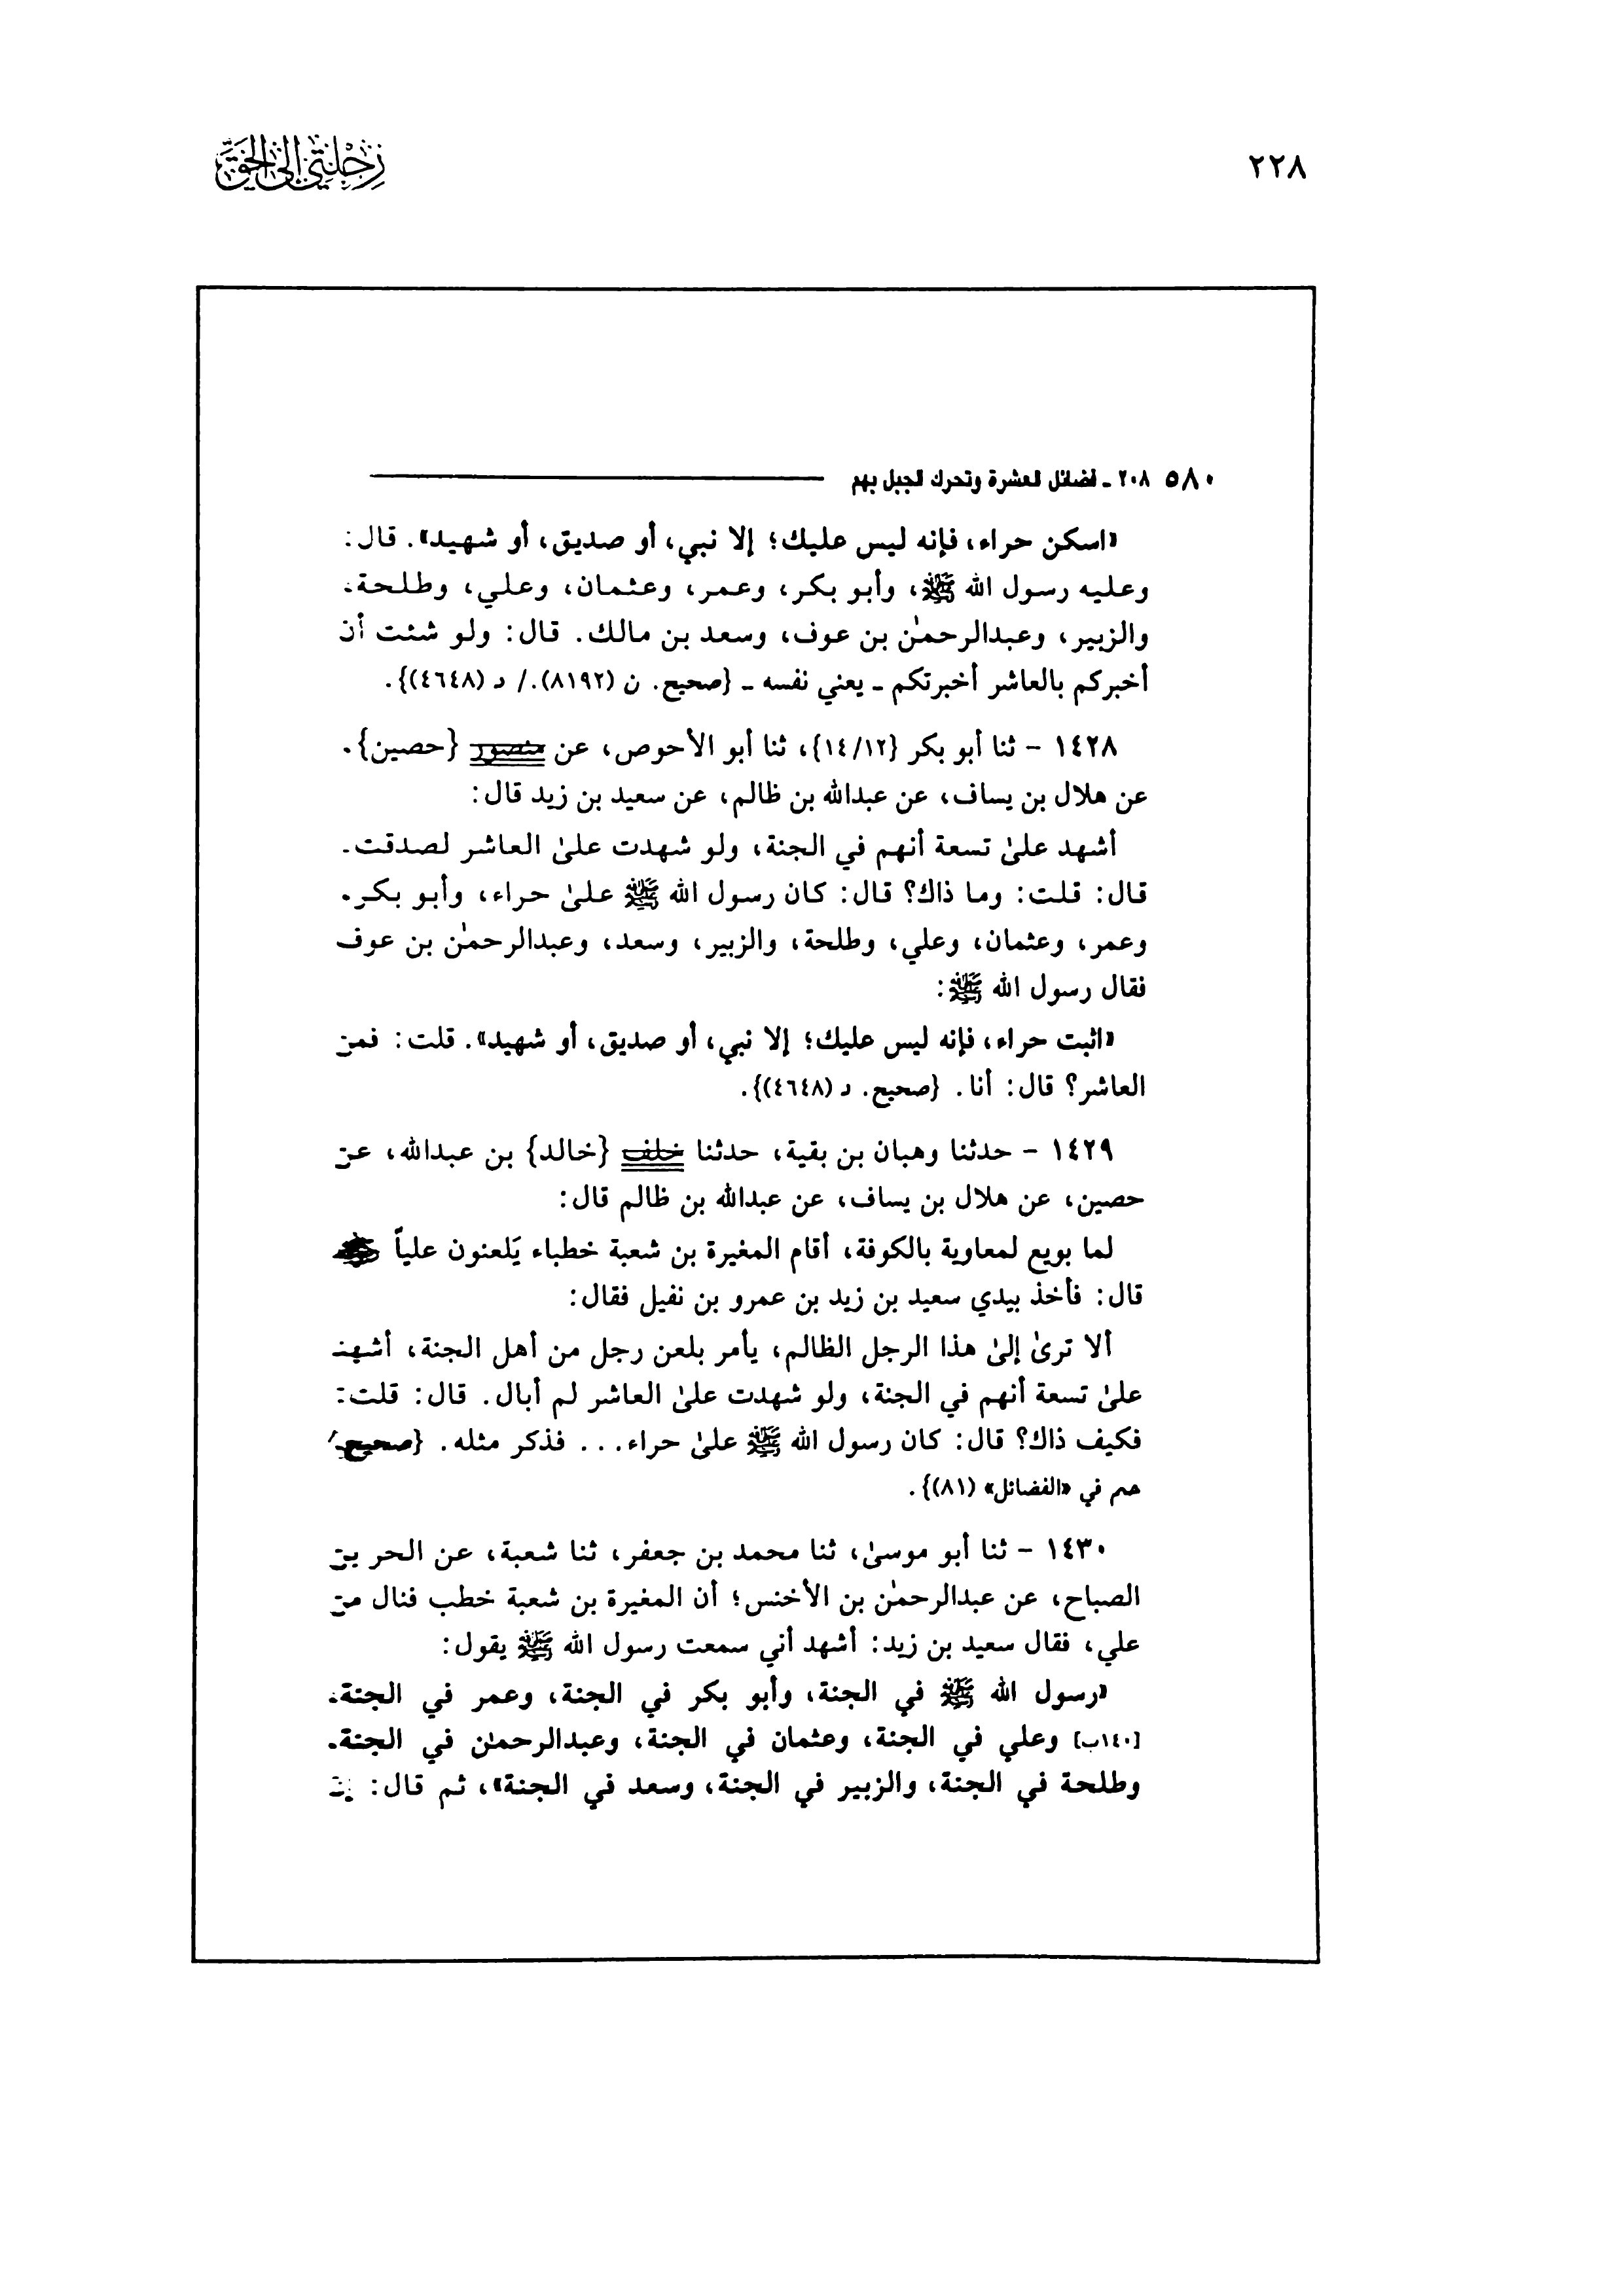 ٢٢٨
رحلتي إلى الحق
٥٨٠ ٢٠٨ ـ فضائل العشرة وتحرك الجبل بهم
«اسكن حراء، فإنه ليس عليك؛ إلا نبي، أو صديق، أو شهيد». قال:
وعليه رسول الله ﷺ، وأبو بكر، وعمر، وعثمان، وعلي، وطلحة،
والزبير، وعبدالرحمٰن بن عوف، وسعد بن مالك. قال: ولو شئت أن
أخبركم بالعاشر أخبرتكم ـ يعني نفسه ـ {صحيح. ن (٨١٩٢)./ د (٤٦٤٨)}.
١٤٢٨ - ثنا أبو بكر {١٤/١٢}، ثنا أبو الأحوص، عن منصور {حصين}.
عن هلال بن يساف، عن عبدالله بن ظالم، عن سعيد بن زيد قال:
أشهد علىٰ تسعة أنهم في الجنة، ولو شهدت علىٰ العاشر لصدقت.
قال: قلت: وما ذاك؟ قال: كان رسول الله ﷺ علىٰ حراء، وأبو بكر.
وعمر، وعثمان، وعلي، وطلحة، والزبير، وسعد، وعبدالرحمٰن بن عوف
فقال رسول الله ﷺ:
«اثبت حراء، فإنه ليس عليك؛ إلا نبي، أو صديق، أو شهيد». قلت: فمن
العاشر؟ قال: أنا. {صحيح. د (٤٦٤٨)}.
١٤٢٩ - حدثنا وهبان بن بقية، حدثنا خلف {خالد} بن عبدالله، عن
حصين، عن هلال بن يساف، عن عبدالله بن ظالم قال:
لما بويع لمعاوية بالكوفة، أقام المغيرة بن شعبة خطباء يَلعنون علياً
قال: فأخذ بيدي سعيد بن زيد بن عمرو بن نفيل فقال:
ألا ترىٰ إلىٰ هذا الرجل الظالم، يأمر بلعن رجل من أهل الجنة، أشهد
علىٰ تسعة أنهم في الجنة، ولو شهدت علىٰ العاشر لم أبال. قال: قلت:
فكيف ذاك؟ قال: كان رسول الله ﷺ علىٰ حراء... فذكر مثله. {صحيح
حم في «الفضائل» (٨١)}.
١٤٣٠ - ثنا أبو موسىٰ، ثنا محمد بن جعفر، ثنا شعبة، عن الحر بن
الصباح، عن عبدالرحمٰن بن الأخنس؛ أن المغيرة بن شعبة خطب فنال من
علي، فقال سعيد بن زيد: أشهد أني سمعت رسول الله ﷺ يقول:
«رسول الله ﷺ في الجنة، وأبو بكر في الجنة، وعمر في الجنة،
[١٤٠ب] وعلي في الجنة، وعثمان في الجنة، وعبدالرحمٰن في الجنة.
وطلحة في الجنة، والزبير في الجنة، وسعد في الجنة»، ثم قال: